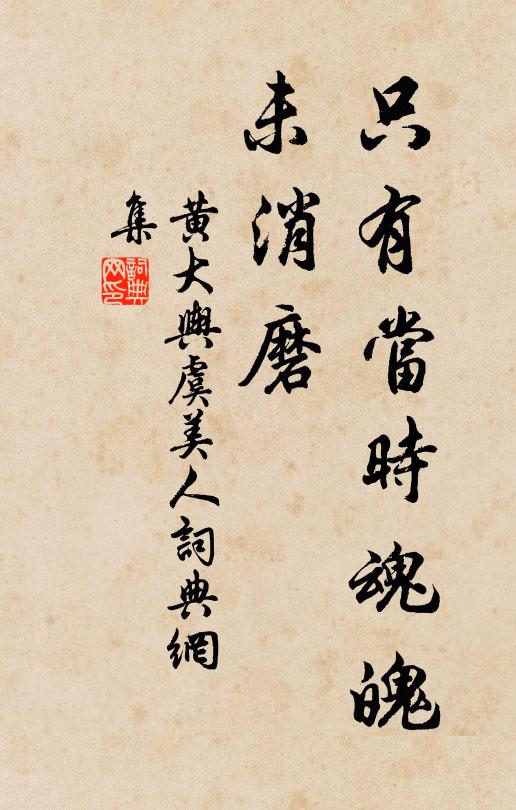 只有當時魂魄
未消磨
黄大輿虞美人詞典網
集
詞典
网印